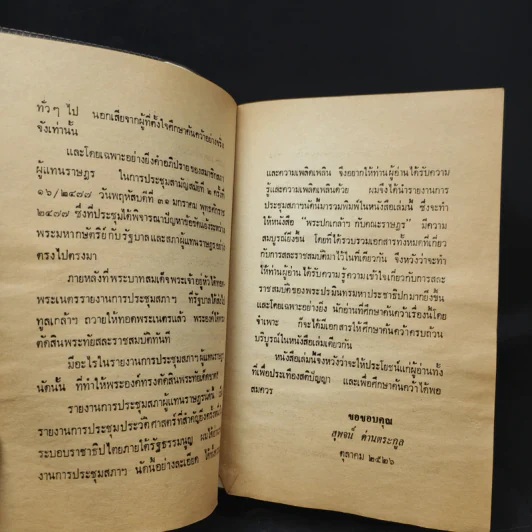 ทั่วๆ ไป นอกเสียจากผู้ที่ตั้งใจศึกษาค้นคว้าอย่างจริง
จังเท่านั้น
และโดยเฉพาะอย่างยิ่งคำอภิปรายของสมาชิกสภา
ผู้แทนราษฎร ในการประชุมสามัญสมัยที่ ๒ ครั้งที่
๑๖/๒๔๗๗ วันพฤหัสบดีที่ ๓๑ มกราคม พุทธศักราช
๒๔๗๗ ซึ่งที่ประชุมได้พิจารณาปัญหาข้อขัดแย้งระหว่าง
พระมหากษัตริย์กับรัฐบาลและสภาผู้แทนราษฎรอย่าง
ตรงไปตรงมา
ภายหลังที่พระบาทสมเด็จพระเจ้าอยู่หัวได้ทอด
พระเนตรรายงานการประชุมสภาฯ ที่รัฐบาลได้ส่งไป
ทูลเกล้าฯ ถวายให้ทอดพระเนตรแล้ว พระองค์ก็ทรง
ตัดสินพระทัยสละราชสมบัติทันที
มีอะไรในรายงานการประชุมสภาผู้แทนราษฎร
นัดนั้น ที่ทำให้พระองค์ทรงตัดสินพระทัยเด็ดขาด
รายงานการประชุมสภาผู้แทนราษฎรนัดนี้ เป็น
รายงานการประชุมประวัติศาสตร์ที่สำคัญยิ่งครั้งหนึ่งใน
ระบอบราชาธิปไตยภายใต้รัฐธรรมนูญ ผมได้อ่าน
งานการประชุมสภาฯ นัดนี้อย่างละเอียด ได้
และความเพลิดเพลิน จึงอยากให้ท่านผู้อ่านได้รับความ
รู้และความเพลิดเพลินด้วย ผมจึงได้นำรายงานการ
ประชุมสภาฯนัดนี้มารวมพิมพ์ในหนังสือเล่มนี้ ซึ่งจะทำ
ให้หนังสือ "พระปกเกล้าฯ กับคณะราษฎร" มีความ
สมบูรณ์ยิ่งขึ้น โดยที่ได้รวบรวมเอกสารทั้งหมดที่เกี่ยว
กับการสละราชสมบัติมาไว้ในที่เดียวกัน จึงหวังว่าจะทำ
ให้ท่านผู้อ่านได้รับความรู้ความเข้าใจเกี่ยวกับการสละ
ราชสมบัติของพระปรมินทรมหาประชาธิปกมากยิ่งขึ้น
และโดยเฉพาะอย่างยิ่ง นักอ่านที่ศึกษาค้นคว้าเรื่องนี้โดย
จำเพาะ ก็จะได้มีเอกสารให้ศึกษาค้นคว้าครบถ้วน
บริบูรณ์ในหนังสือเล่มเดียวกัน
หนังสือเล่มนี้จึงหวังว่าจะให้ประโยชน์แก่ผู้อ่านทั้ง
ที่เพื่อประเทืองสติปัญญา และเพื่อศึกษาค้นคว้าได้พอ
สมควร
ขอขอบคุณ
สุพจน์ ด่านตระกูล
ตุลาคม ๒๕๒๖